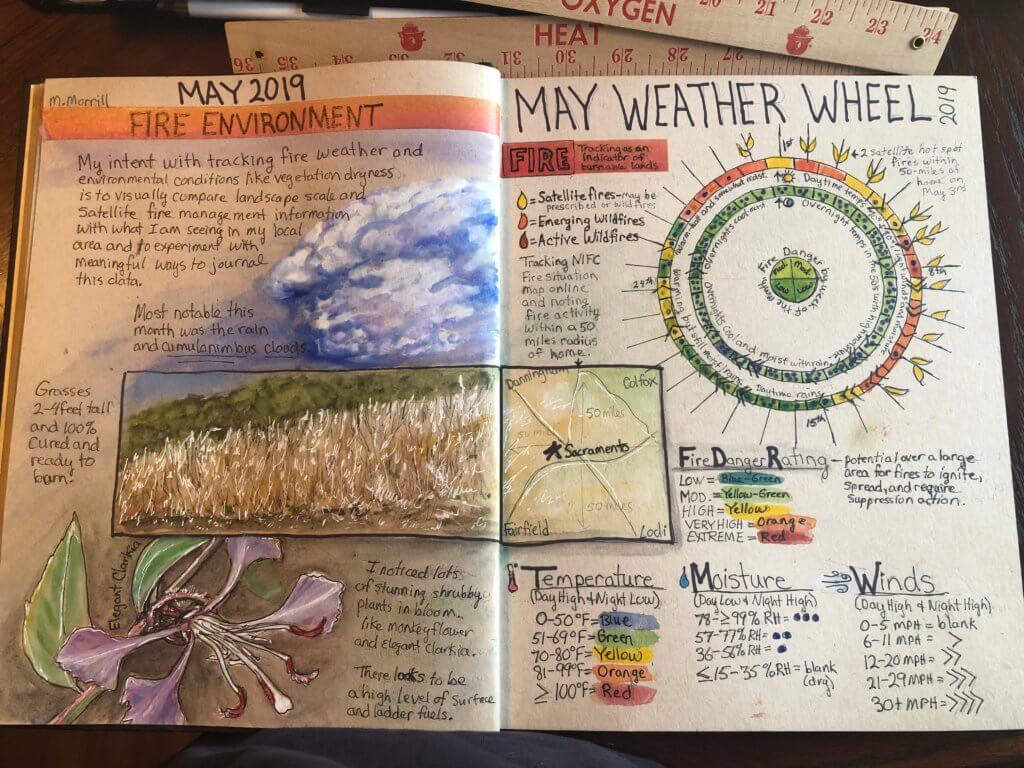 OXYGEN
20 21 22 23 24
HEAT
36 35 34 33 32 31 30 29 28 27
M. Morrill
MAY 2019
FIRE ENVIRONMENT
My intent with tracking fire weather and
environmental conditions like vegetation dryness
is to visually compare landscape scale and
Satellite fire management information
with what I am seeing in my local
area and to experiment with
meaningful ways to journal
this data.
Most notable this
month was the rain
and cumulonimbus clouds.
Grasses
2-4 feet tall
and 100%
Cured and
ready to
burn!
Elegant Clarkia
I noticed lots
of stunning shrubby
plants in bloom.
like monkeyflower
and Elegant Clarkia.
There looks to be
a high level of surface
and ladder fuels.
MAY WEATHER WHEEL
2019
FIRE
Tracking as an
indicator of
burnable lands.
Satellite fires-may be
prescribed or wildfires
Emerging Wildfires
Active Wildfires
Tracking NIFC
Fire situation
map online
and noting
fire activity
within a 50
miles radius
of home.
2 satellite hot spot
fires within
50-miles
of home on
May 3rd
1st
8th
15th
24th
Daytime temps
Overnight temps in the 50's with high moisture
light winds and moisture
Daytime rains
Overnights cool and moist with rain
but still moist/rains
Warm-hot and somewhat moist.
Overnights cool moist.
Fire Danger by week of the Month
Mod Mod
Low Low
Dunningham
Colfox
50 miles
50 miles
Sacramento
50 miles
Fairfield
Lodi
Fire Danger Rating
LOW = Blue-Green
MOD. = Yellow-Green
HIGH = Yellow
VERY HIGH = Orange
EXTREME = Red
potential over a large
area for fires to ignite,
spread, and require
suppression action.
Temperature
(Day High & Night Low)
0-50°F = Blue
51-69°F = Green
70-80°F = Yellow
81-99°F = Orange
≥ 100°F = Red
Moisture
(Day Low & Night High)
78-≥99% RH =
57-77% RH =
36-56% RH =
≤15-35% RH = blank
(dry)
Winds
(Day High & Night High)
0-5 MPH = blank
6-11 MPH = >
12-20 MPH = >>
21-29 MPH = >>>
30+ MPH = >>>>